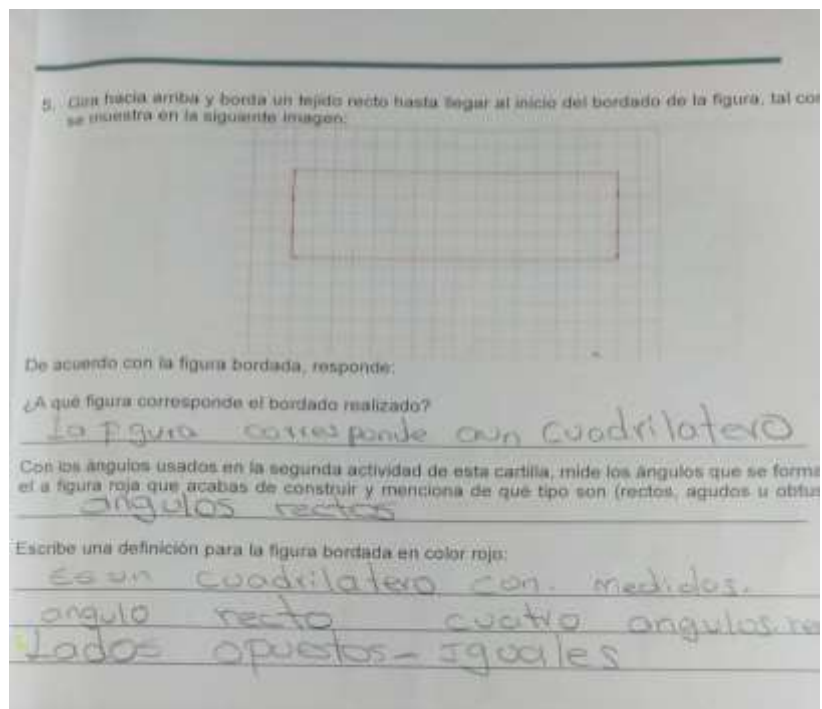 5. Gira hacia arriba y borda un tejido recto hasta llegar al inicio del bordado de la figura, tal co
se muestra en la siguiente imagen:
De acuerdo con la figura bordada, responde:
¿A qué figura corresponde el bordado realizado?
La figura corresponde aun cuadrilatero
Con los ángulos usados en la segunda actividad de esta cartilla, mide los ángulos que se forma
el a figura roja que acabas de construir y menciona de qué tipo son (rectos, agudos u obtus
angulos rectos
Escribe una definición para la figura bordada en color rojo:
Es un cuadrilatero con. medidas.
angulo recto cuatro angulos re
Lados opuestos - Iguales